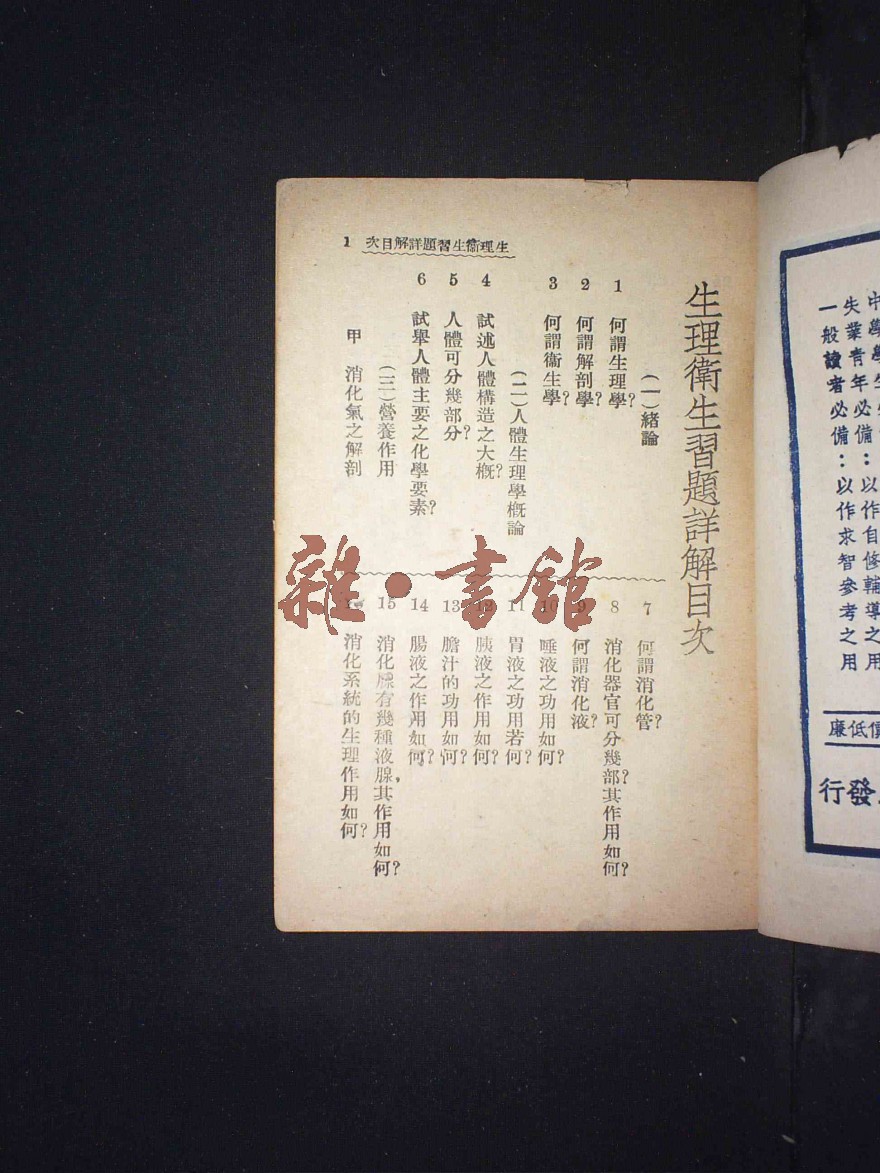 生理衛生習題詳解目次
1 次目解詳題習生衞理生
(一)緒論
1 何謂生理學?
2 何謂解剖學?
3 何謂衞生學?
(二)人體生理學槪論
4 試述人體構造之大槪?
5 人體可分幾部分?
6 試舉人體主要之化學要素?
(三)營養作用
甲 消化氣之解剖
7 何謂消化管?
8 消化器官可分幾部?其作用如何?
9 何謂消化液?
10 唾液之功用如何?
11 胃液之功用若何?
12 胰液之作用如何?
13 膽汁的功用如何?
14 腸液之作用如何?
15 消化腺有幾種液腺,其作用如何?
消化系統的生理作用如何?
雜·書館
失業青年必備:以作自修輔導之用
一般讀者必備:以作求智參考之用
廉低價
行發